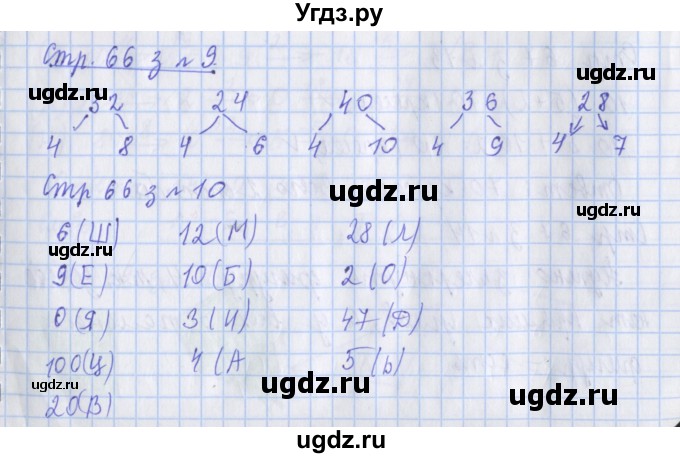 Угдз.ру
Стр. 66 з № 9
32 24 40 36 28
4 8 4 6 4 10 4 9 4 7
Стр 66 з № 10
6 (Ш) 12 (М) 28 (Л)
9 (Е) 10 (Б) 2 (О)
0 (Я) 3 (И) 47 (Д)
100 (Ц) 4 (А 5 (Ь)
20 (В)
ugdz.ru
ugdz.ru
ugdz.ru
ugdz.ru
ugdz.ru
ugdz.ru
ugdz.ru
ugdz.ru
ugdz.ru
ugdz.ru
ugdz.ru